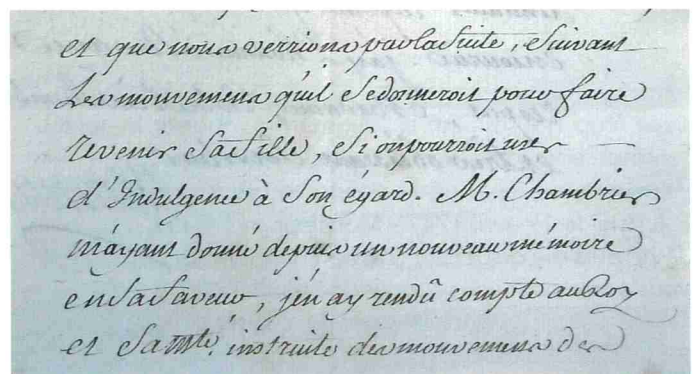 et que nous verrions par la suite, suivant
les mouvemens qu'il se donneroit pour faire
revenir sa fille, si on pourroit user
d'Indulgence à son égard. M. Chambrier
m'ayant donné depuis un nouveau mémoire
en sa faveur, j'en ay rendû compte au Roy
et sa Mté. instruite des mouvemens de